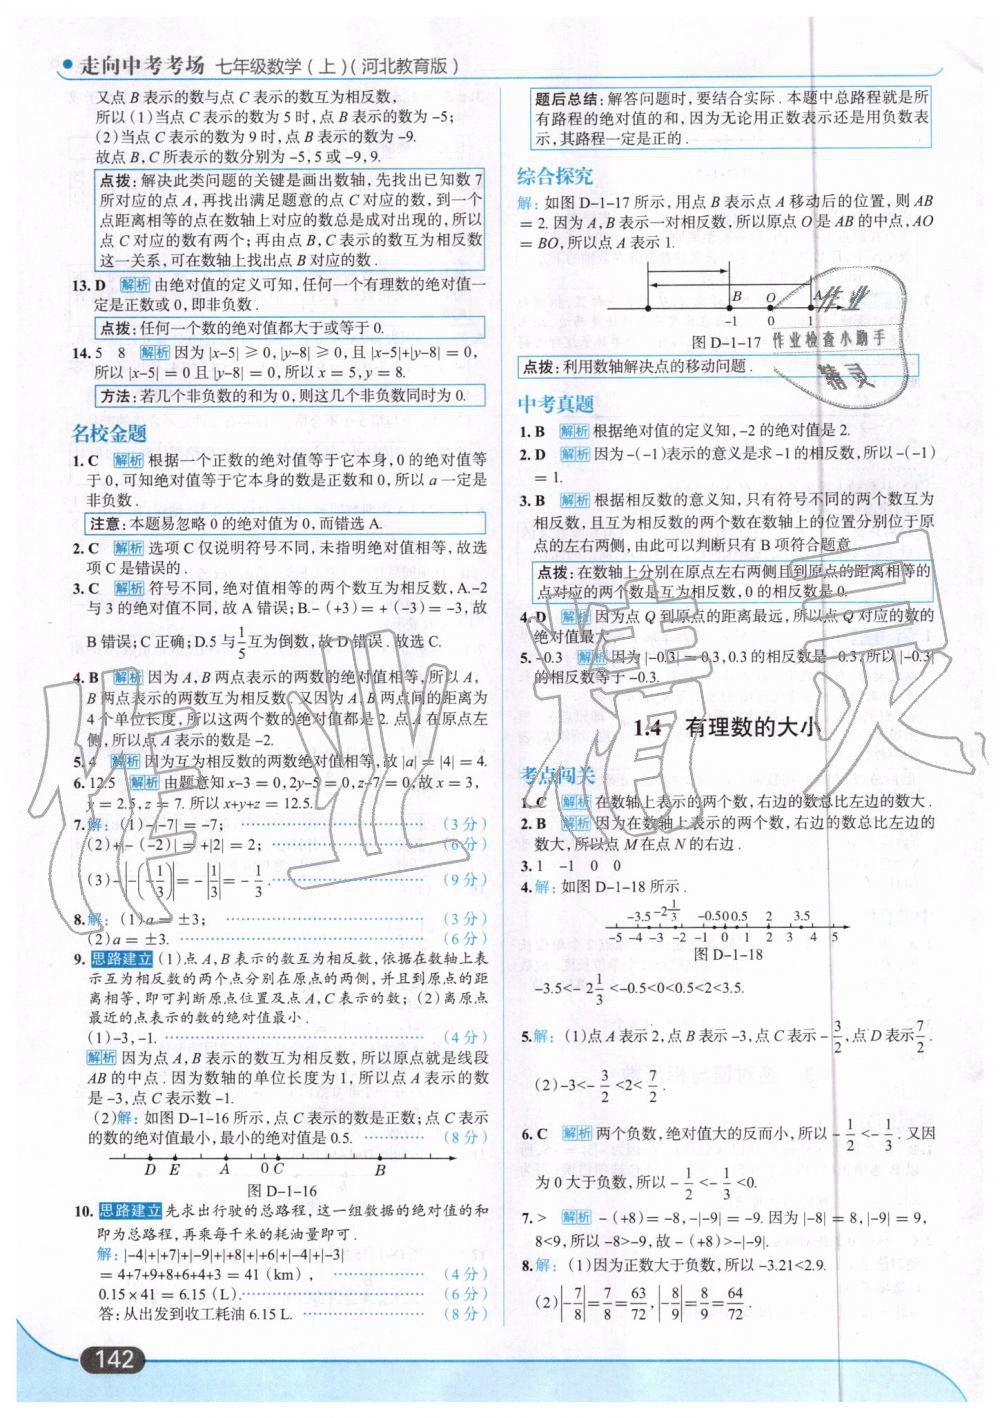 走向中考考场 七年级数学(上)(河北教育版)
又点 B 表示的数与点 C 表示的数互为相反数,
所以(1)当点 C 表示的数为 5 时,点 B 表示的数为 -5;
(2)当点 C 表示的数为 9 时,点 B 表示的数为 -9.
故点 B,C 所表示的数分别为 -5,5 或 -9,9.
点拨:解决此类问题的关键是画出数轴,先找出已知数 7
所对应的点 A,再找出满足题意的点 C 对应的数,到一个
点距离相等的点在数轴上对应的数总是成对出现的,所以
点 C 对应的数有两个;再由点 B,C 表示的数互为相反数
这一关系,可在数轴上找出点 B 对应的数.
13. D 解析 由绝对值的定义可知,任何一个有理数的绝对值一
定是正数或 0,即非负数.
点拨:任何一个数的绝对值都大于或等于 0.
14. 5 8 解析 因为 |x-5| ≥ 0,|y-8| ≥ 0,且 |x-5|+|y-8| = 0,
所以 |x-5| = 0 且 |y-8| = 0,所以 x = 5,y = 8.
方法:若几个非负数的和为 0,则这几个非负数同时为 0.
名校金题
1. C 解析 根据一个正数的绝对值等于它本身,0 的绝对值等
于 0,可知绝对值等于它本身的数是正数和 0,所以 a 一定是
非负数.
注意:本题易忽略 0 的绝对值为 0,而错选 A.
2. C 解析 选项 C 仅说明符号不同,未指明绝对值相等,故选
项 C 是错误的.
3. C 解析 符号不同,绝对值相等的两个数互为相反数,A.-2
与 3 的绝对值不同,故 A 错误;B.-(+3)= +(-3)= -3,故
B 错误;C 正确;D.5 与 1/5 互为倒数,故 D 错误. 故选 C.
4. B 解析 因为 A,B 两点表示的两数的绝对值相等,所以 A,
B 两点表示的两数互为相反数. 又因为 A,B 两点间的距离为
4 个单位长度,所以这两个数的绝对值都是 2. 点 A 在原点左
侧,所以点 A 表示的数是 -2.
5. 4 解析 因为互为相反数的两数绝对值相等,故 |a| = |4| = 4.
6. 12.5 解析 由题意知 x-3 = 0,2y-5 = 0,z-7 = 0,故 x = 3,
y = 2.5,z = 7. 所以 x+y+z = 12.5.
7. 解:(1)-|-7| = -7; (3 分)
(2)+|-(-2)| = +|2| = 2; (6 分)
(3)-|-(-1/3)| = -|1/3| = -1/3. (9 分)
8. 解:(1)a = ±3; (3 分)
(2)a = ±3. (6 分)
9. 思路建立 (1)点 A,B 表示的数互为相反数,依据在数轴上表
示互为相反数的两个点分别在原点的两侧,并且到原点的距
离相等,即可判断原点位置及点 A,C 表示的数;(2)离原点
最近的点表示的数的绝对值最小.
(1)-3,-1. (4 分)
解析 因为点 A,B 表示的数互为相反数,所以原点就是线段
AB 的中点. 因为数轴的单位长度为 1,所以点 A 表示的数
是 -3,点 C 表示数 -1.
(2)解:如图 D-1-16 所示,点 C 表示的数是正数;点 C 表示
的数的绝对值最小,最小的绝对值是 0.5. (8 分)
D E A 0 C B
图 D-1-16
10. 思路建立 先求出行驶的总路程,这一组数据的绝对值的和
即为总路程,再乘每千米的耗油量即可.
解:|-4|+|+7|+|-9|+|+8|+|+6|+|-4|+|-3|
= 4+7+9+8+6+4+3 = 41(km), (4 分)
0.15 × 41 = 6.15(L). (6 分)
答:从出发到收工耗油 6.15 L. (8 分)
142
题后总结:解答问题时,要结合实际. 本题中总路程就是所
有路程的绝对值的和,因为无论用正数表示还是用负数表
示,其路程一定是正的.
综合探究
解:如图 D-1-17 所示,用点 B 表示点 A 移动后的位置,则 AB
= 2. 因为 A,B 表示一对相反数,所以原点 O 是 AB 的中点,AO
= BO,所以点 A 表示 1.
B O A
-1 0 1
图 D-1-17
点拨:利用数轴解决点的移动问题.
作业
作业检查小助手
精灵
中考真题
1. B 解析 根据绝对值的定义知,-2 的绝对值是 2.
2. D 解析 因为 -(-1)表示的意义是求 -1 的相反数,所以 -(-1)
= 1.
3. B 解析 根据相反数的意义知,只有符号不同的两个数互为
相反数,且互为相反数的两个数在数轴上的位置分别位于原
点的左右两侧,由此可以判断只有 B 项符合题意.
点拨:在数轴上分别在原点左右两侧且到原点的距离相等的
点对应的两个数是互为相反数,0 的相反数是 0.
4. D 解析 因为点 Q 到原点的距离最远,所以点 Q 对应的数的
绝对值最大.
5. -0.3 解析 因为 |-0.3| = 0.3,0.3 的相反数是 -0.3,所以 |-0.3|
的相反数等于 -0.3.
1.4 有理数的大小
考点闯关
1. C 解析 在数轴上表示的两个数,右边的数总比左边的数大.
2. B 解析 因为在数轴上表示的两个数,右边的数总比左边的
数大,所以点 M 在点 N 的右边.
3. 1 -1 0 0
4. 解:如图 D-1-18 所示.
-3.5 -2 1/3 -0.5 0 0.5 2 3.5
-5 -4 -3 -2 -1 0 1 2 3 4 5
图 D-1-18
-3.5<- 2 1/3 <-0.5<0<0.5<2<3.5.
5. 解:(1)点 A 表示 2,点 B 表示 -3,点 C 表示 -3/2,点 D 表示 7/2.
(2)-3<-3/2<2<7/2.
6. C 解析 两个负数,绝对值大的反而小,所以 -1/2<-1/3. 又因
为 0 大于负数,所以 -1/2<-1/3<0.
7. > 解析 -(+8)= -8,-|-9| = -9. 因为 |-8| = 8,|-9| = 9,
8<9,所以 -8>-9,故 -(+8)>-|-9|.
8. 解:(1)因为正数大于负数,所以 -3.21<2.9.
(2)|-7/8| = 7/8 = 63/72,|-8/9| = 8/9 = 64/72.
作业精灵